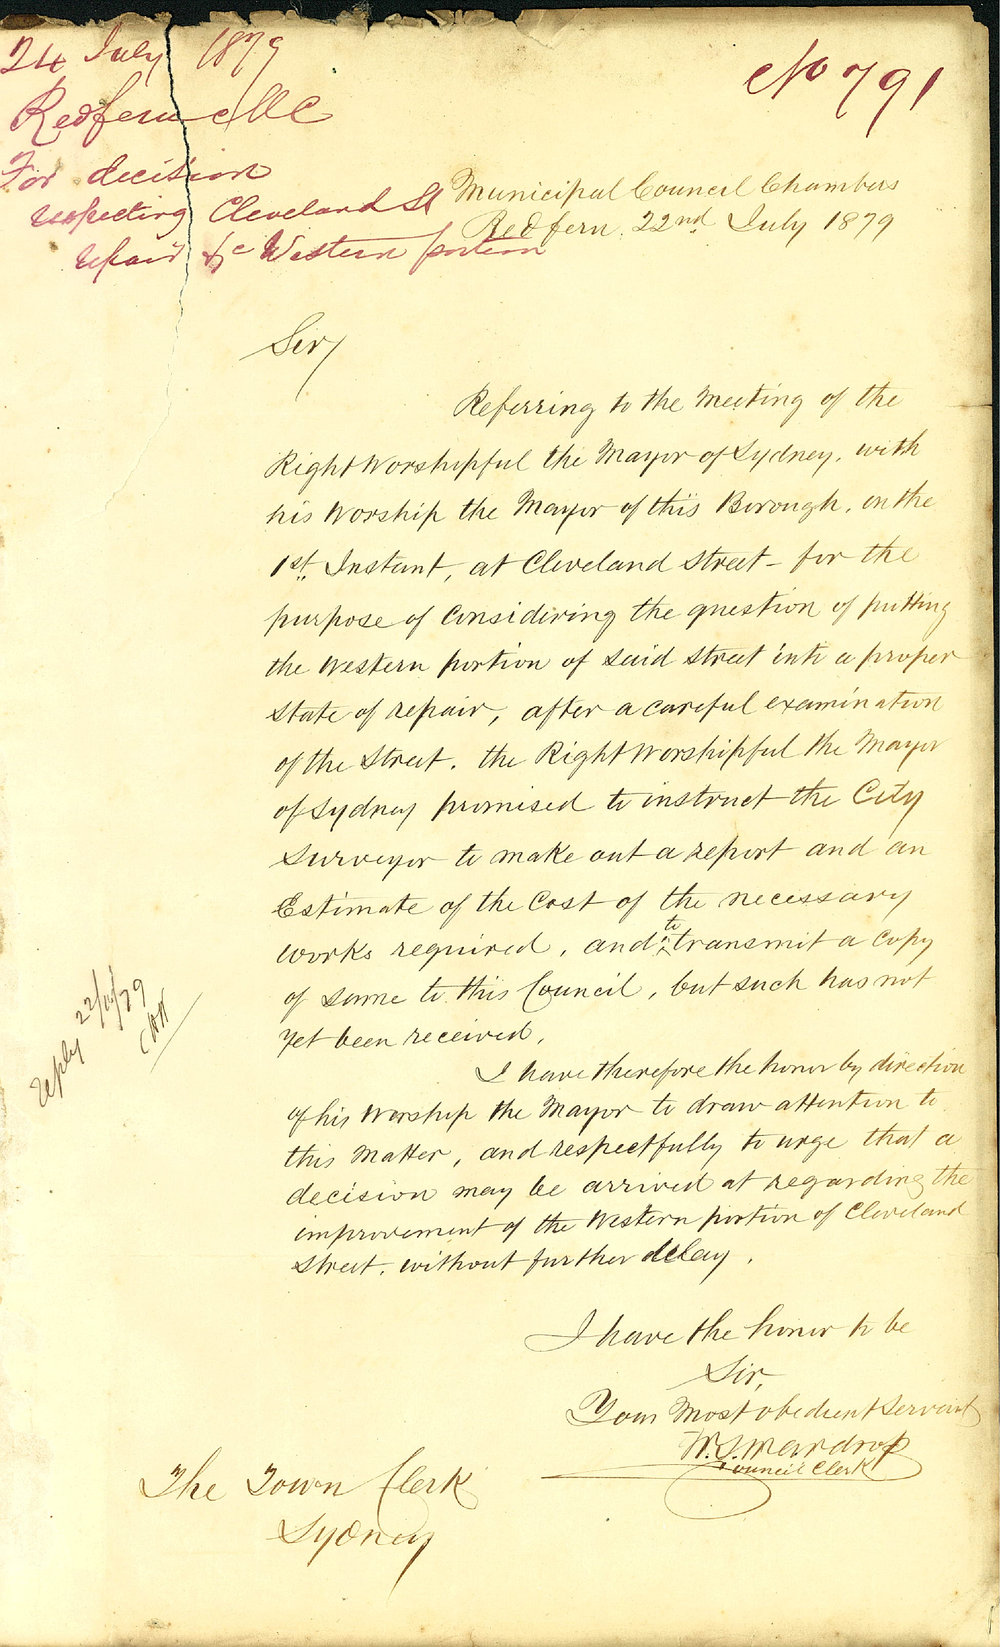 24 July 1879
No 791
Redfern M C
For decision
respecting Cleveland St
repair &c Western portion
Municipal Council Chambers
Redfern. 22nd July 1879
Sir/
Referring to the Meeting of the
Right Worshipful the Mayor of Sydney, with
his Worship the Mayor of this Borough, on the
1st Instant, at Cleveland Street - for the
purpose of Considering the question of putting
the Western portion of said Street into a proper
State of repair, after a careful examination
of the Street, the Right Worshipful the Mayor
of Sydney promised to instruct the City
Surveyor to make out a report and an
Estimate of the Cost of the necessary
works required, and to transmit a copy
of same to this Council, but such has not
yet been received.
I have therefore the honor by direction
of his Worship the Mayor to draw attention to
this Matter, and respectfully to urge that a
decision may be arrived at regarding the
improvement of the Western portion of Cleveland
Street, without further delay.
Reply 22/10/79
I have the honor to be
Sir,
Your Most obedient Servant
W.S. Wardrop
Council Clerk
The Town Clerk
Sydney